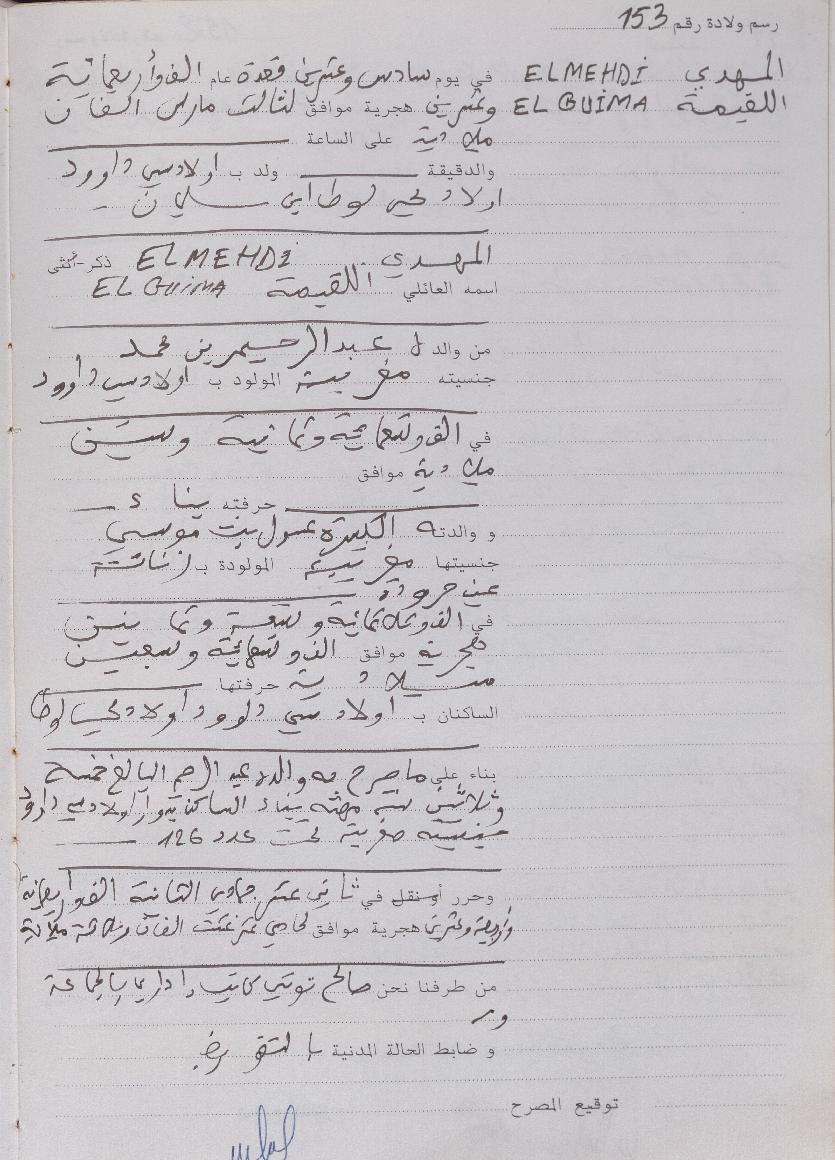 رسم ولادة رقم 153
المهدي ELMEHDi في يوم سادس وعشرين قعدة عام الف وأربعمائة
اللقيمة ELGUiMA وعشرين هجرية موافق لثالث مارس الفان
ميلادية على الساعة
والدقيقة ولد ب اولاد سي داوود
اولاد لوطا
المهدي ELMEHDi ذكر-أنثى
اسمه العائلي اللقيمة ELGUiMA
من والده عبد الرحيم بن محمد
جنسيته مغربية المولود ب اولاد سي داوود
في الف وتسعمائة وثمانية وستين
ميلادية موافق
حرفته بناء
و والدته الكبيرة بنت موسى
جنسيتها مغربية المولودة ب زناتة
عين حرودة
في الف وثلاثمائة وتسعة وثمانين
هجرية موافق الف وتسعمائة وسبعين
ميلادية حرفتها
الساكنان ب اولاد سي داوود اولاد لوطا
بناء على ما صرح به والده عبد الرحيم البالغ خمسة
وثلاثين سنة مهنته بناء الساكن بدوار اولاد سي داوود
جنسيته مغربية تحت عدد 126
وحرر أو نقل في ثاني عشر جمادى الثانية الف واربعمائة
وأربعة وعشرين هجرية موافق غشت الفان وثلاثة ميلادية
من طرفنا نحن صالح كاتب إداري بالجماعة
و ضابط الحالة المدنية بالتفويض
توقيع المصرح